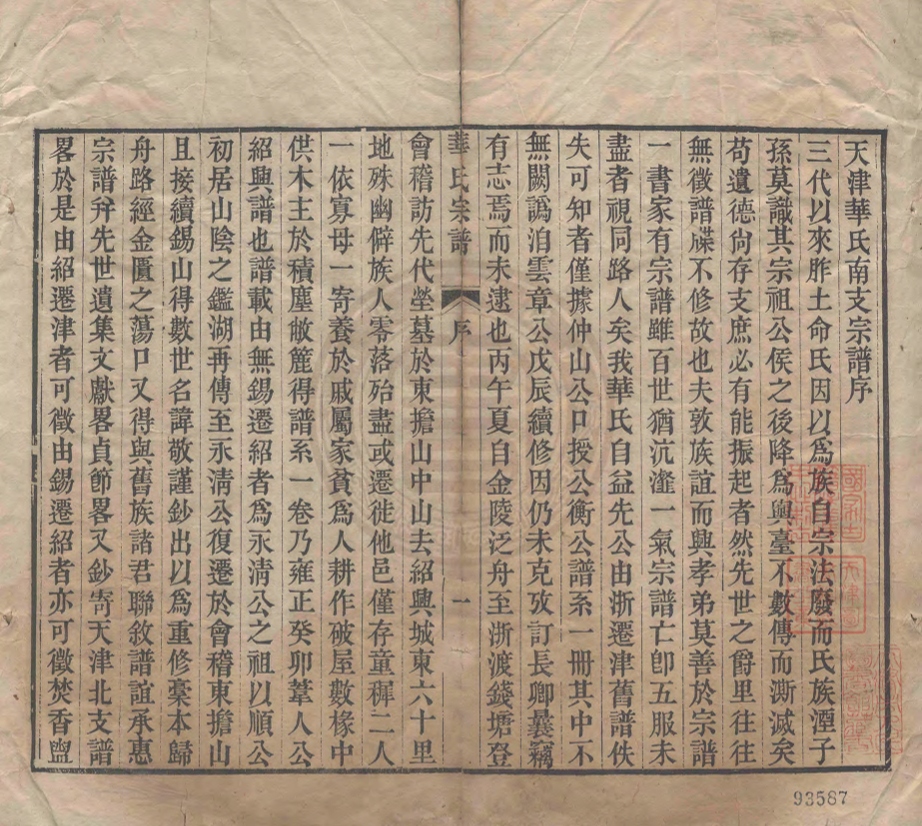 天津華氏南支宗譜序
三代以來胙土命氏因以爲族自宗法廢而氏族湮子
孫莫識其宗祖公侯之後降爲輿臺不數傳而澌滅矣
苟遺德尙存支庶必有能振起者然先世之爵里往往
無徵譜牒不修故也夫敦族誼而興孝弟莫善於宗譜
一書家有宗譜雖百世猶沆瀣一氣宗譜亡卽五服未
盡者視同路人矣我華氏自益先公由浙遷津舊譜佚
失可知者僅據仲山公口授公衡公譜系一冊其中不
無闕譌洎雲章公戊辰續修因仍未克攷訂長卿曩竊
有志焉而未逮也丙午夏自金陵泛舟至浙渡錢塘登
華氏宗譜 序 一
會稽訪先代塋墓於東擔山中山去紹興城東六十里
地殊幽僻族人零落殆盡或遷徙他邑僅存童穉二人
一依寡母一寄養於戚屬家貧爲人耕作破屋數椽中
供木主於積塵敝簏得譜系一卷乃雍正癸卯葦人公
紹興譜也譜載由無錫遷紹者爲永淸公之祖以順公
初居山陰之鑑湖再傳至永淸公復遷於會稽東擔山
且接續錫山得數世名諱敬謹鈔出以爲重修槀本歸
舟路經金匱之蕩口又得與舊族諸君聯敘譜誼承惠
宗譜幷先世遺集文獻畧貞節畧又鈔寄天津北支譜
畧於是由紹遷津者可徵由錫遷紹者亦可徵焚香盥
93587